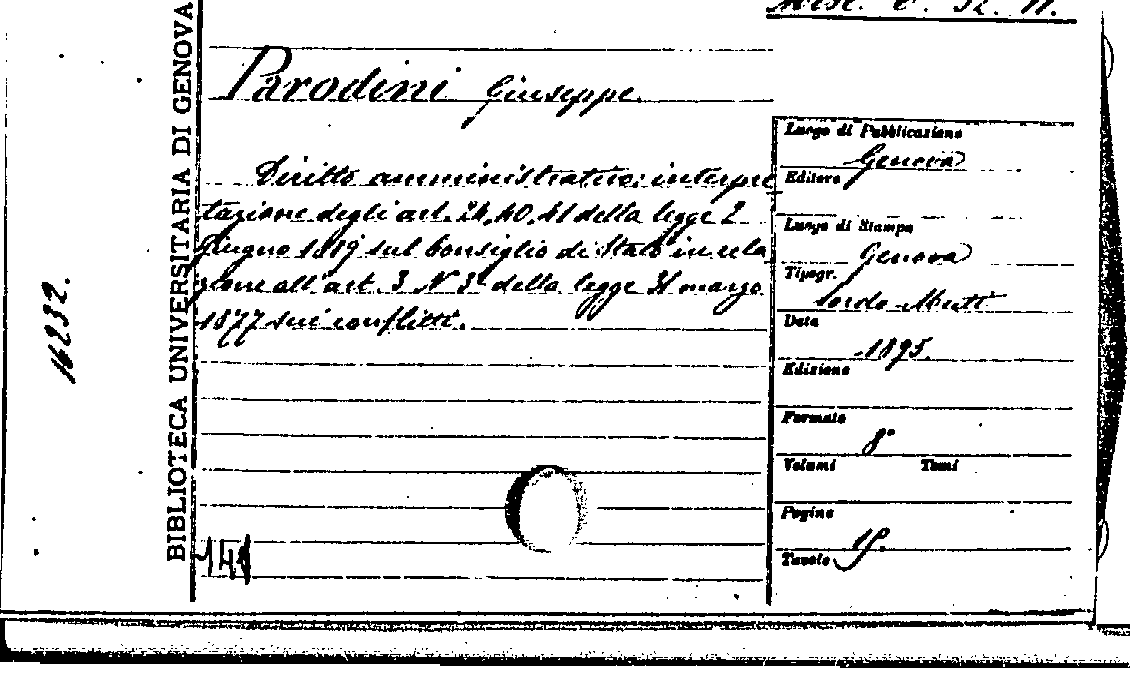 Misc. C. 52. 11.
Parodini Giuseppe
Diritto amministrativo: interpre
tazione degli art. 24, 40, 41 della legge 2
giugno 1889 sul Consiglio di Stato in rela
zione all'art. 3 N 3° della legge 31 marzo
1877 sui conflitti.
Luogo di Pubblicazione
Genova
Editore
Luogo di Stampa
Genova
Tipogr.
Sordo-Muti
Data
1895
Edizione
Formato
8°
Volumi Tomi
Pagine
Tavole
141
BIBLIOTECA UNIVERSITARIA DI GENOVA
16232.